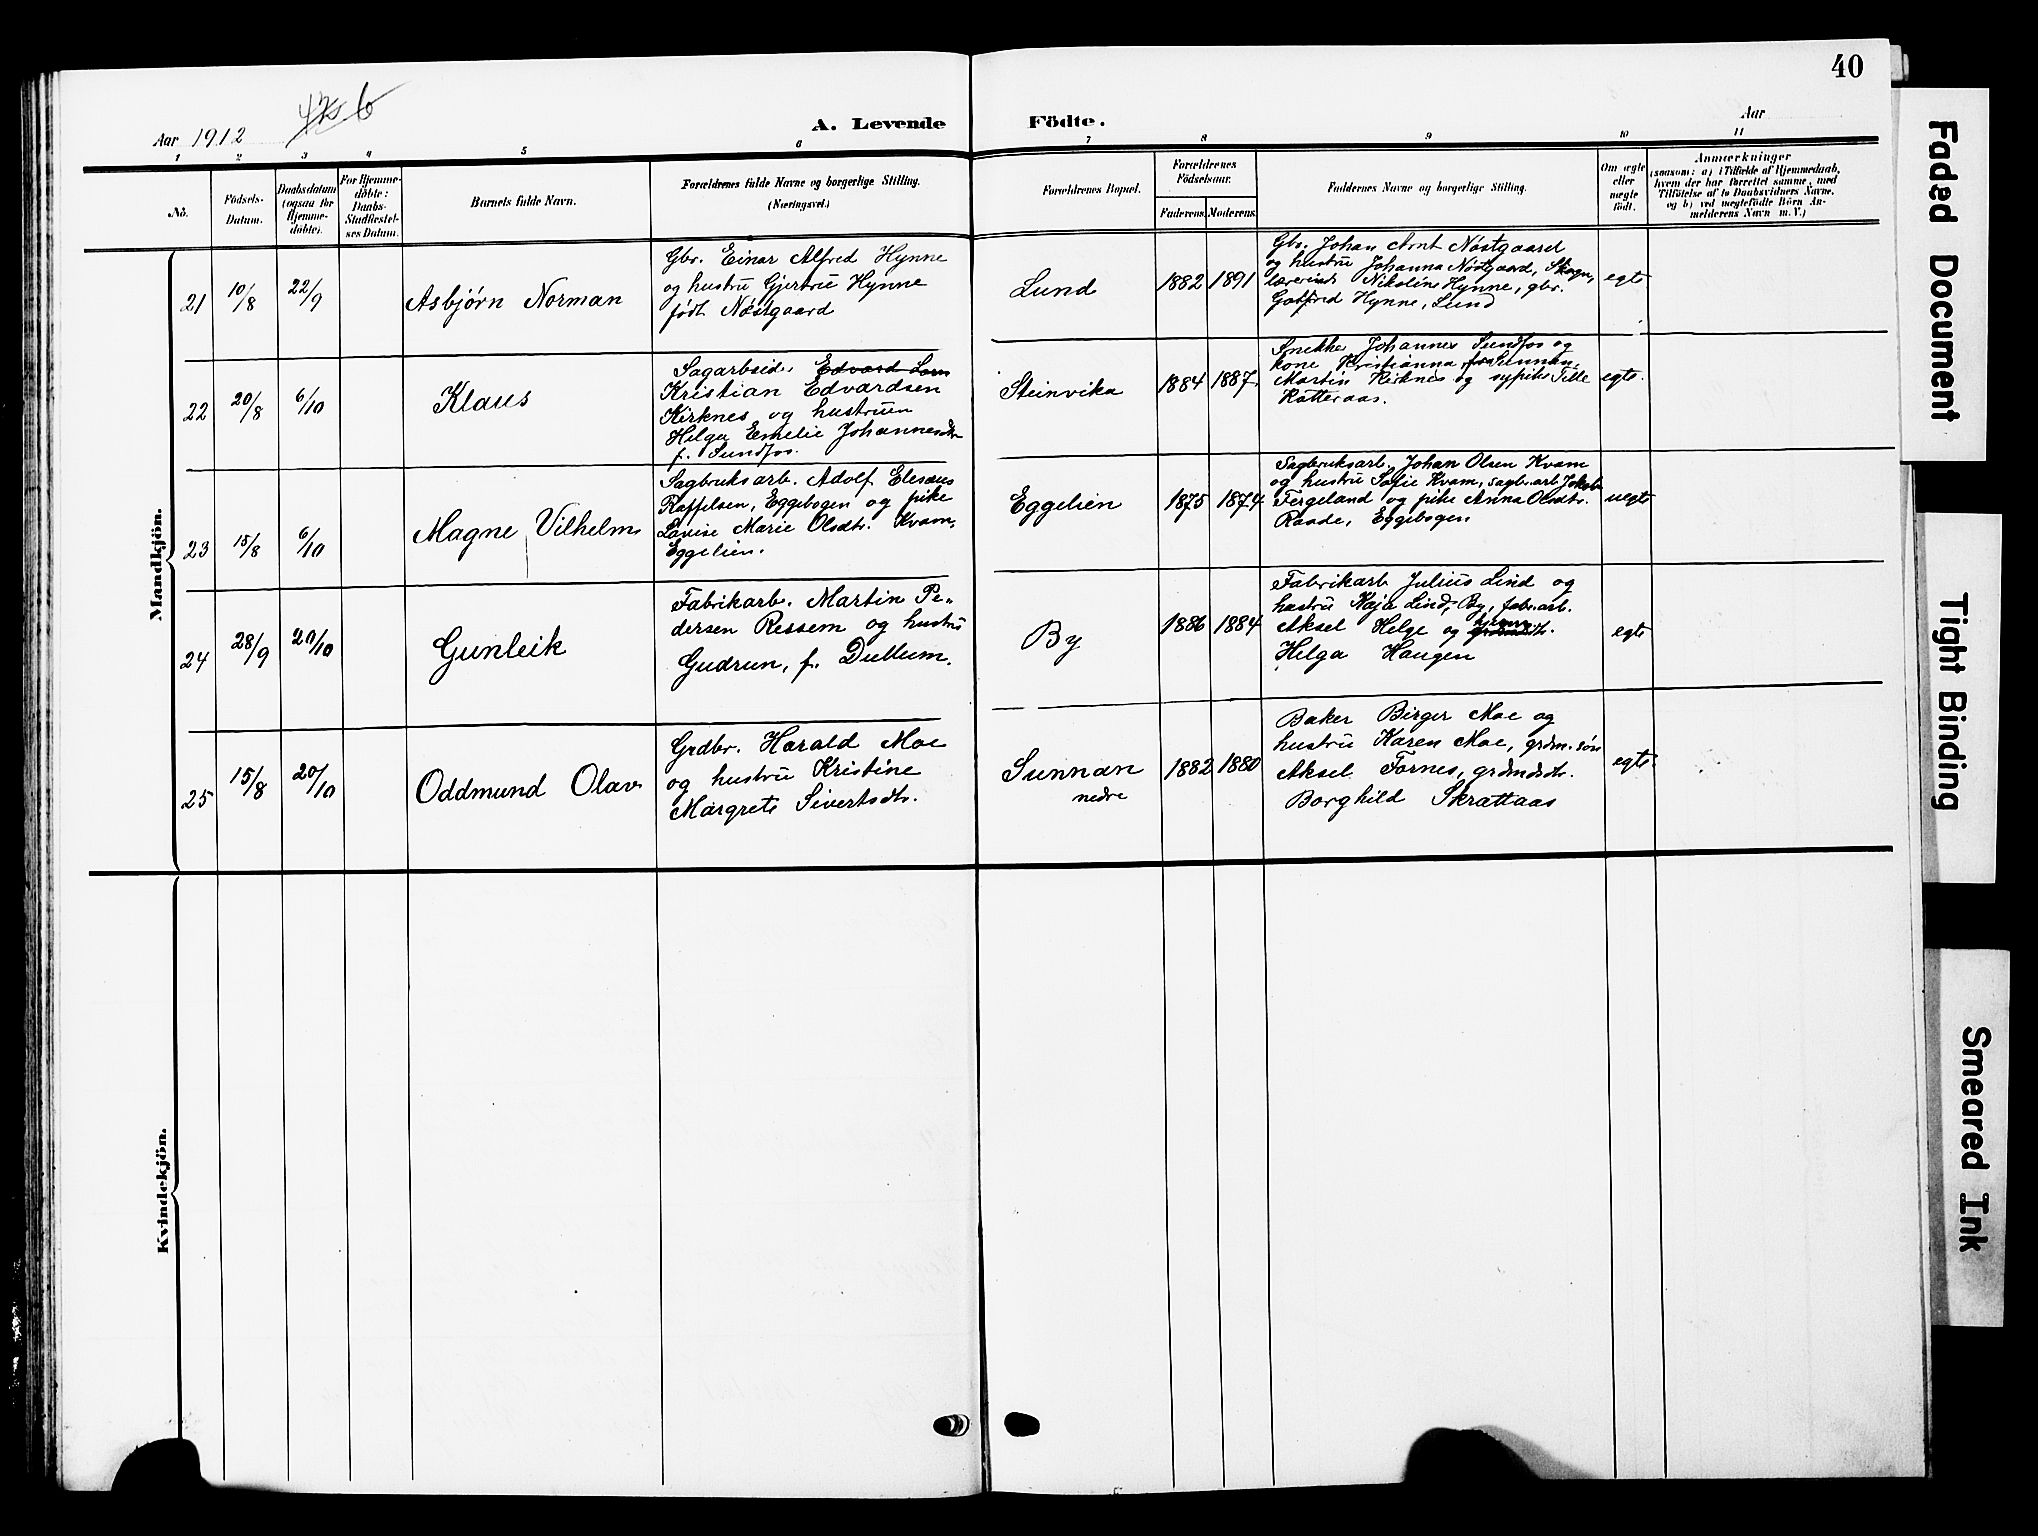 40
Aar 1912
A. Levende Födte.
Aar
1 2 3 4 5 6 7 8 9 10 11
No.
Födsels-
Datum.
Daabsdatum
(ogsaa for
Hjemme-
döbte).
For Hjemme-
döbte:
Daabs-
Stadfæstel-
ses Datum.
Barnets fulde Navn.
Forældrenes fulde Navne og borgerlige Stilling.
(Næringsvei.)
Forældrenes Bopæl.
Forældrenes
Födselsaar.
Faderens. Moderens.
Faddernes Navne og borgerlige Stilling.
Om ægte
eller
uægte
født.
Anmærkninger
(saasom: a) i Tilfælde af Hjemmedaab,
hvem der har forrettet samme, med
Tilföielse af to Daabsvidners Navne,
og b) ved uægtefödte Börn An-
melderens Navn m. V.)
Mandkjön.
21 10/8 22/9 Asbjørn Norman
Gbr. Einar Alfred Hynne
og hustru Gjertru Hynne
født Nøstgaard
Lund 1882 1891
Gbr. Johan Arnt Nøstgaard
og hustru Johanna Nøstgaard, Skogn,
lærerinde Nikoline Hynne, gbr.
Gotfred Hynne, Lund
egte
22 20/8 6/10 Klaus
Sagarbeid. Edvard
Kristian Edvardsen
Kirknes og hustruen
Helga Emelie Johannesdtr
f. Sundfos.
Steinvika 1884 1887
Snekker Johannes Sundfos og
kone Kristianna Sunnan
Martin Kirknes og sypike Tille
Ratteraas.
egte.
23 15/8 6/10 Magne Vilhelm
Sagbruksarb. Adolf Elesæus
Raffelsen, Eggebogen og pike
Lovise Marie Olsdtr. Kvam,
Eggelien.
Eggelien 1875 1874
Sagbruksarb. Johan Olsen Kvam
og hustru Sofie Kvam, sagbr.arb. Jakob
Fergeland og pike Anna Olsdtr.
Raade, Eggebogen
uegte
24 28/9 20/10 Gunleik
Fabrikarb. Martin Pe-
dersen Ressem og hustru
Gudrun, f. Dullum.
By 1886 1884
Fabrikarb Julius Lind og
hustru Kaja Lind, By, fabr.arb.
Aksel Helge og
Helga Haugen
egte
25 15/8 20/10 Oddmund Olav
Grdbr. Harald Moe
og hustru Kristine
Margrete Sivertsdtr.
Sunnan
nedre
1882 1880
Baker Birger Moe og
hustru Karen Moe, grdm.søn
Aksel Fornes, grdmdsdtr.
Borghild Skrattaas
egte
Kvindekjön.
Faded Document
Tight Binding
Smeared Ink